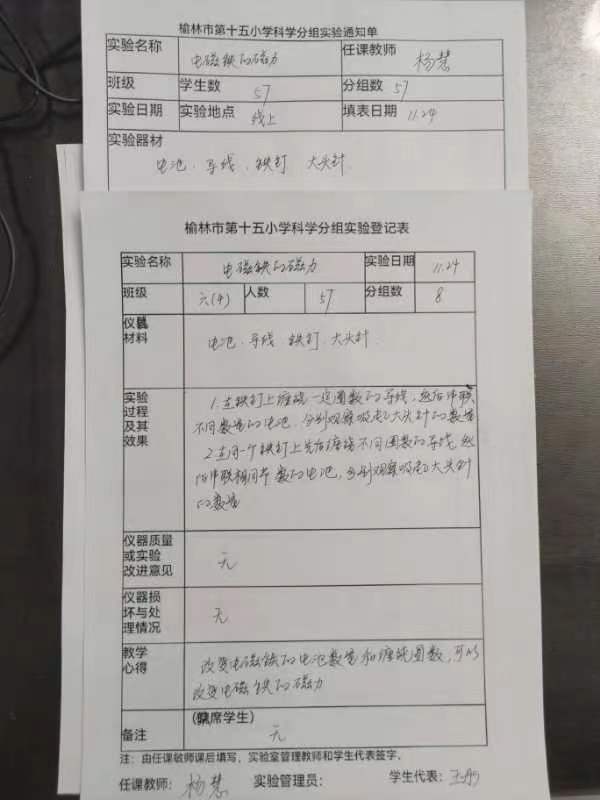 榆林市第十五小学科学分组实验通知单
实验名称 电磁铁的磁力 任课教师 杨慧
班级 学生数 57 分组数 57
实验日期 实验地点 线上 填表日期 11.24
实验器材
电池、导线、铁钉 大头针
榆林市第十五小学科学分组实验登记表
实验名称 电磁铁的磁力 实验日期 11.24
班级 六(4) 人数 57 分组数 8
仪器
材料 电池、导线 铁钉、大头针
实验
过程
及其
效果
1.在铁钉上缠绕一定圈数的导线,然后串联
不同数量的电池,分别观察吸起大头针的数量
2.在同一个铁钉上先后缠绕不同圈数的导线,然
后串联相同节数的电池,分别观察吸起大头针
的数量
仪器质量
或实验
改进意见 无
仪器损
坏与处
理情况 无
教学
心得
改变电磁铁的电池数量和缠绕圈数,可以
改变电磁铁的磁力
备注 (缺席学生)
无
注:由任课教师课后填写,实验室管理教师和学生代表签字。
任课教师: 杨慧 实验管理员: 学生代表: